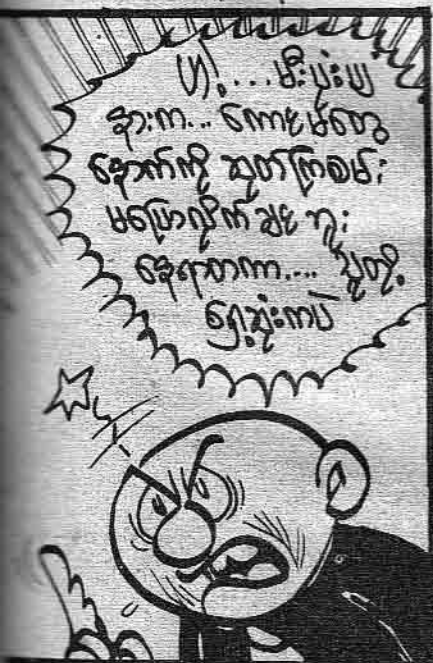 ဟင့်....မီးပုံးပျံ
နားက... ကောင်မတွေ
နောက်ကို ဆုတ်ကြစမ်း
မပြောလိုက်ချင်ဘူး
နေရာတကာ.... သူတို့
ရှေ့ဆုံးကပဲ